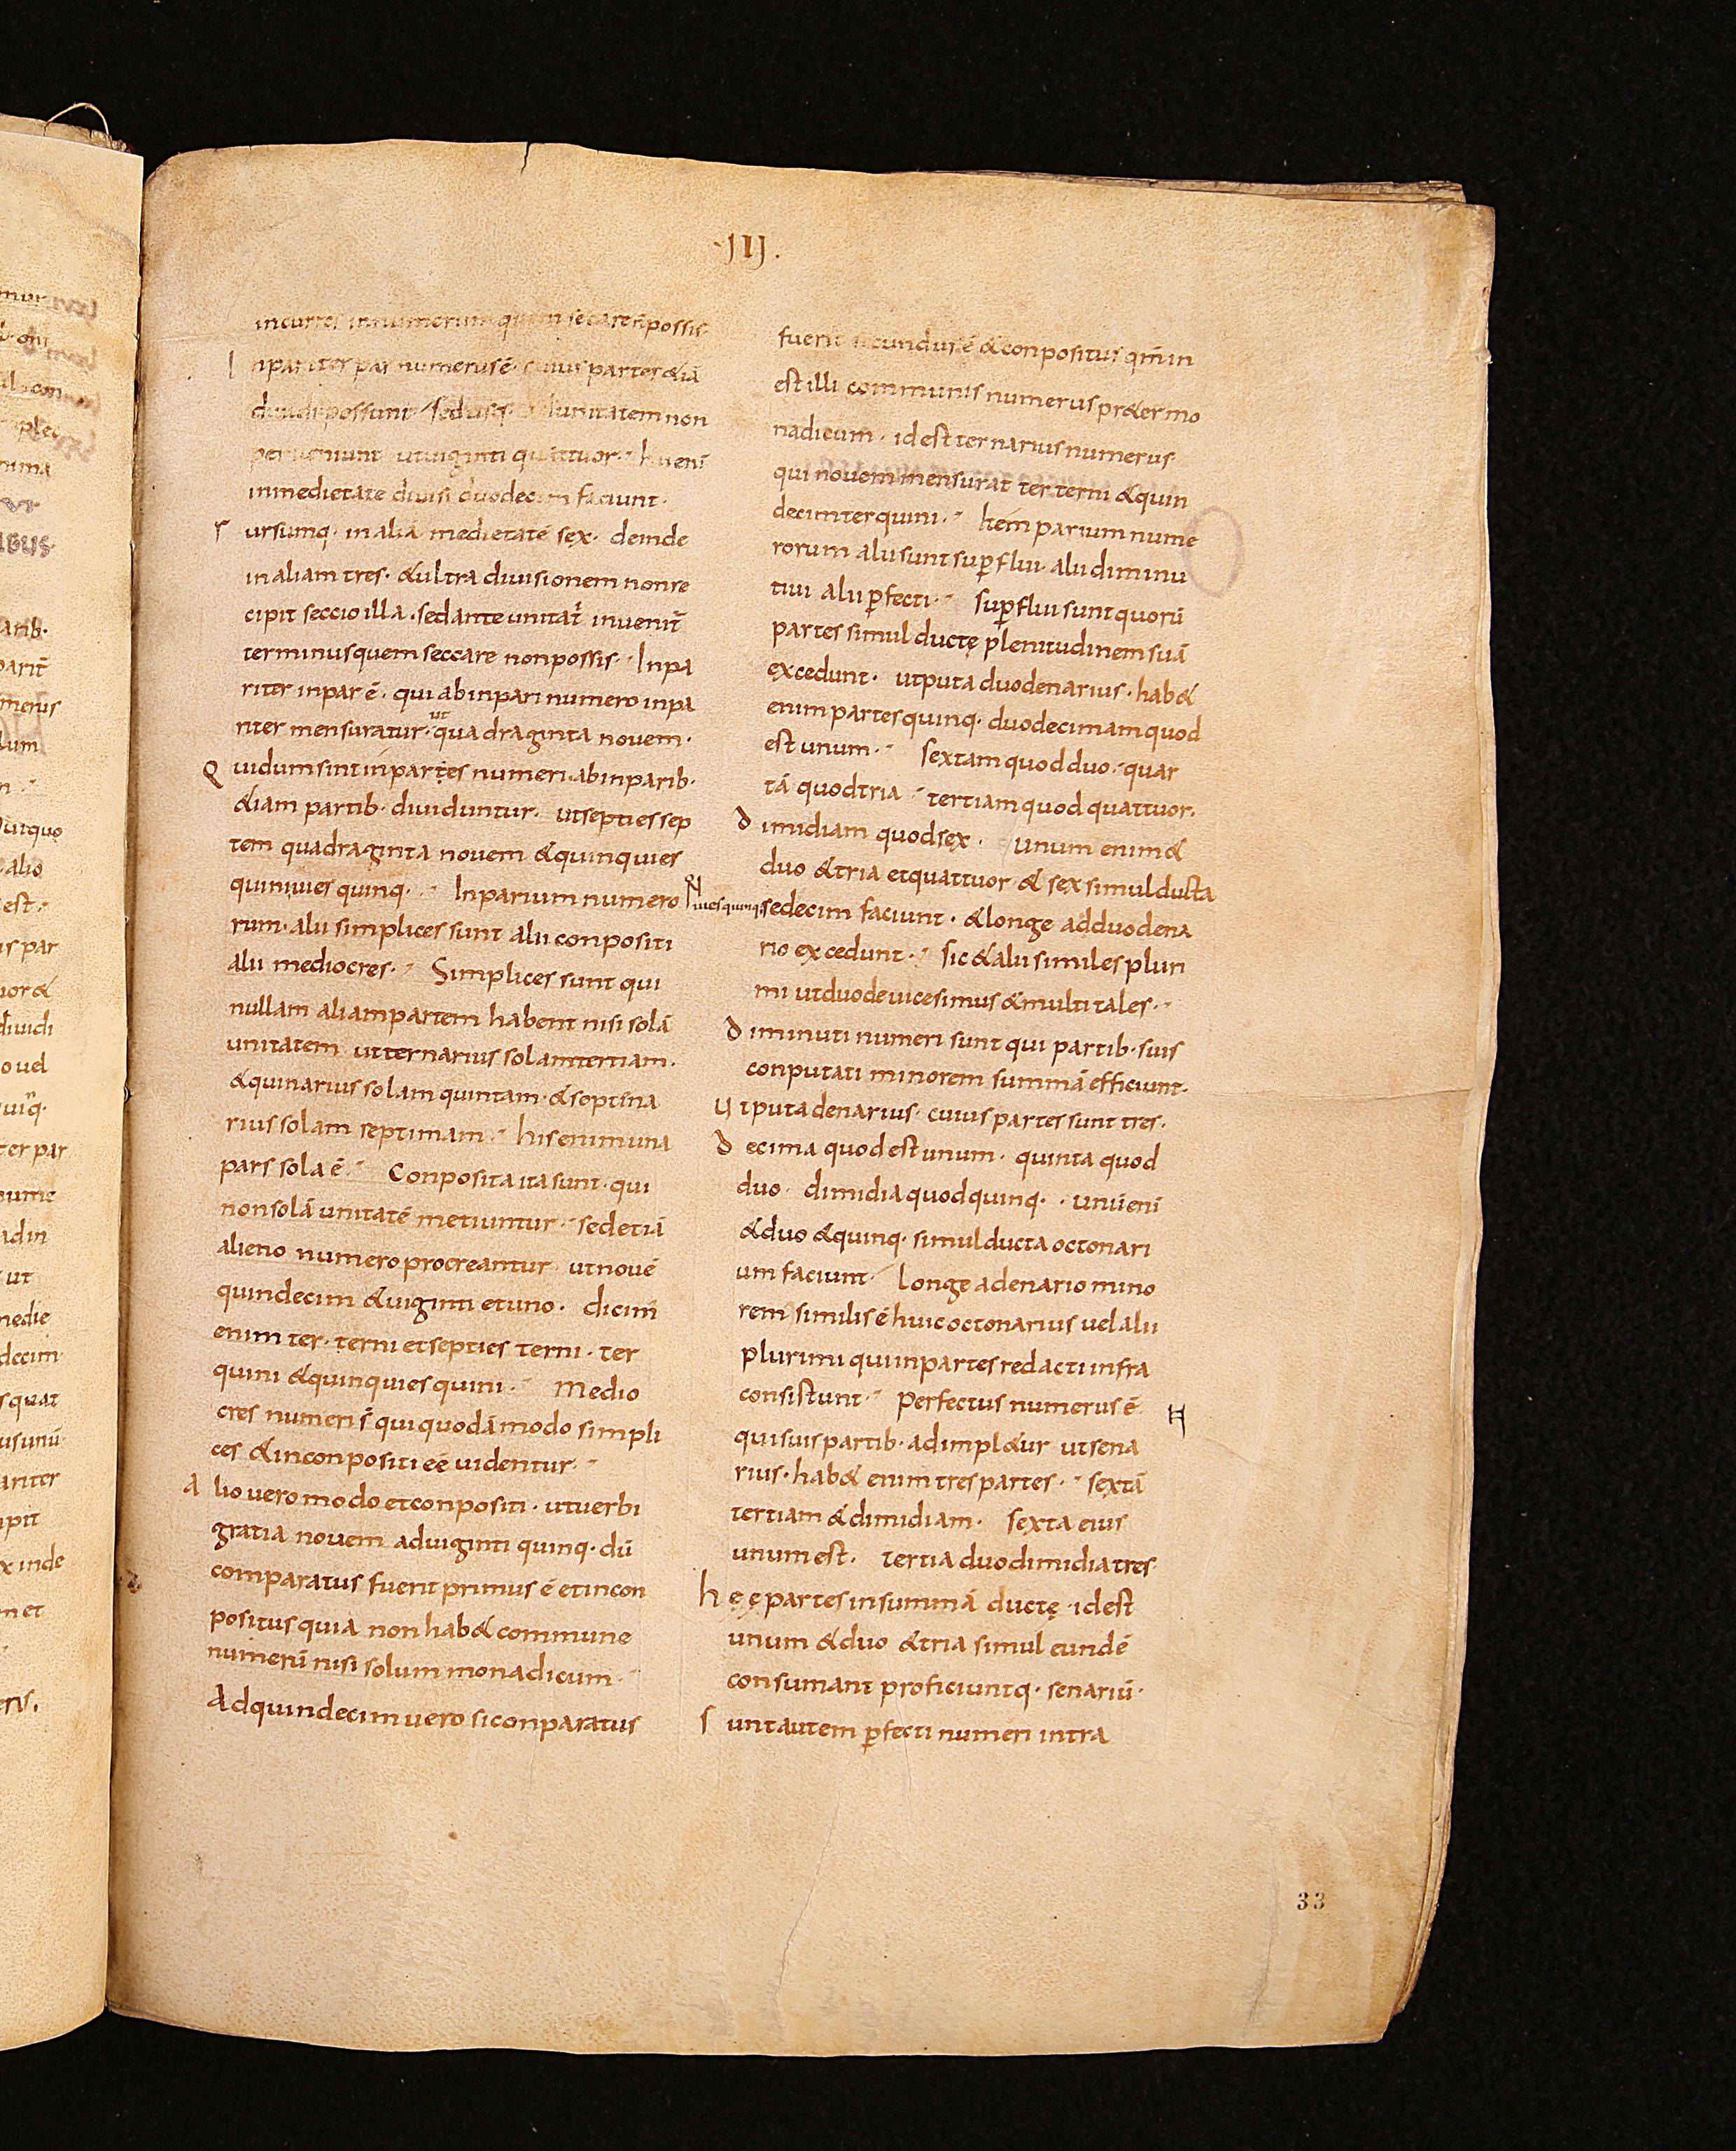 ·IIJ.
incurres innumerum quem secare ñ possis·
I npariter par numerus ē· cuius partes &iā
diuidi possunt sed usq· ad unitatem non
perueniunt· ut uiginti quattuor· hii eni
inmedietate diuisi duodecim faciunt·
r ursumq· in aliā medietatē sex· deinde
in aliam tres· & ultra diuisionem non re
cipit seccio illa· sed ante unitat̄ inuenit̄
terminus quem seccare non possis· Inpa
riter inpar ē· qui ab inpari numero inpa
riter mensuratur· ut quadraginta nouem·
Q ui dum sint inpartes numeri· ab inparib·
&iam partib· diuiduntur· ut septies sep
tem quadraginta nouem & quinquies
quinques quinq· Inparium numero
rum· alii simplices sunt alii conpositi
alii mediocres· Simplices sunt qui
nullam aliam partem habent nisi solā
unitatem ut ternarius solam tertiam·
& quinarius solam quintam· & septina
rius solam septimam· his enim una
pars sola ē· Conposita ita sunt· qui
non solā unitatē metiuntur· sed etiā
alieno numero procreantur ut nouē
quindecim & uiginti et uno· dicim̄
enim ter· terni et septies terni· ter
quini & quinquies quini· Medio
cres numeri s̄ qui quodā modo simpli
ces & inconpositi eē uidentur·
A lio uero modo et conpositi· ut uerbi
gratia nouem ad uiginti quinq· dū
comparatus fuerit primus ē et incon
positus quia non hab& commune
numerū nisi solum monadicum·
Ad quindecim uero si conparatus
uies quinq·
fuerit secundus ē & conpositus qm̄ in
est illi communis numerus pr&er mo
nadicum· id est ternarius numerus·
qui nouem mensurat ter terni & quin
decim ter quini· Item parium nume
rorum alii sunt sup̱flui· alii diminu
tiui alii p̱fecti· Sup̱flui sunt quorū
partes simul ductę plenitudinem suā
excedunt· ut puta duodenarius· hab&
enim partes quinq· duodecimam quod
est unum· Sextam quod duo· quar
tā quod tria· tertiam quod quattuor·
D imidiam quod sex· unum enim &
duo & tria et quattuor & sex simul ducta
sedecim faciunt· & longe ad duodena
rio excedunt· sic & alii similes pluri
mi ut duodeuicesimus & multi tales·
D iminuti numeri sunt qui partib· suis
conputati minorem summā efficiunt·
U t puta denarius· cuius partes sunt tres·
D ecima quod est unum· quinta quod
duo· dimidia quod quinq· unū eni
& duo & quinq· simul ducta octonari
um faciunt· Longe a denario mino
rem similis ē huic octonarius uel alii
plurimi qui inpartes redacti infra
consistunt· Perfectus numerus ē
qui suis partib· adimpl&ur ut sena
rius· hab& enim tres partes· sextā
tertiam & dimidiam· Sexta eius
unum est· tertia duo dimidia tres·
H ęę partes in summā ductę· id est
unum & duo & tria simul eundē
consumant proficiuntq· senariū·
S unt autem p̱fecti numeri intra
33